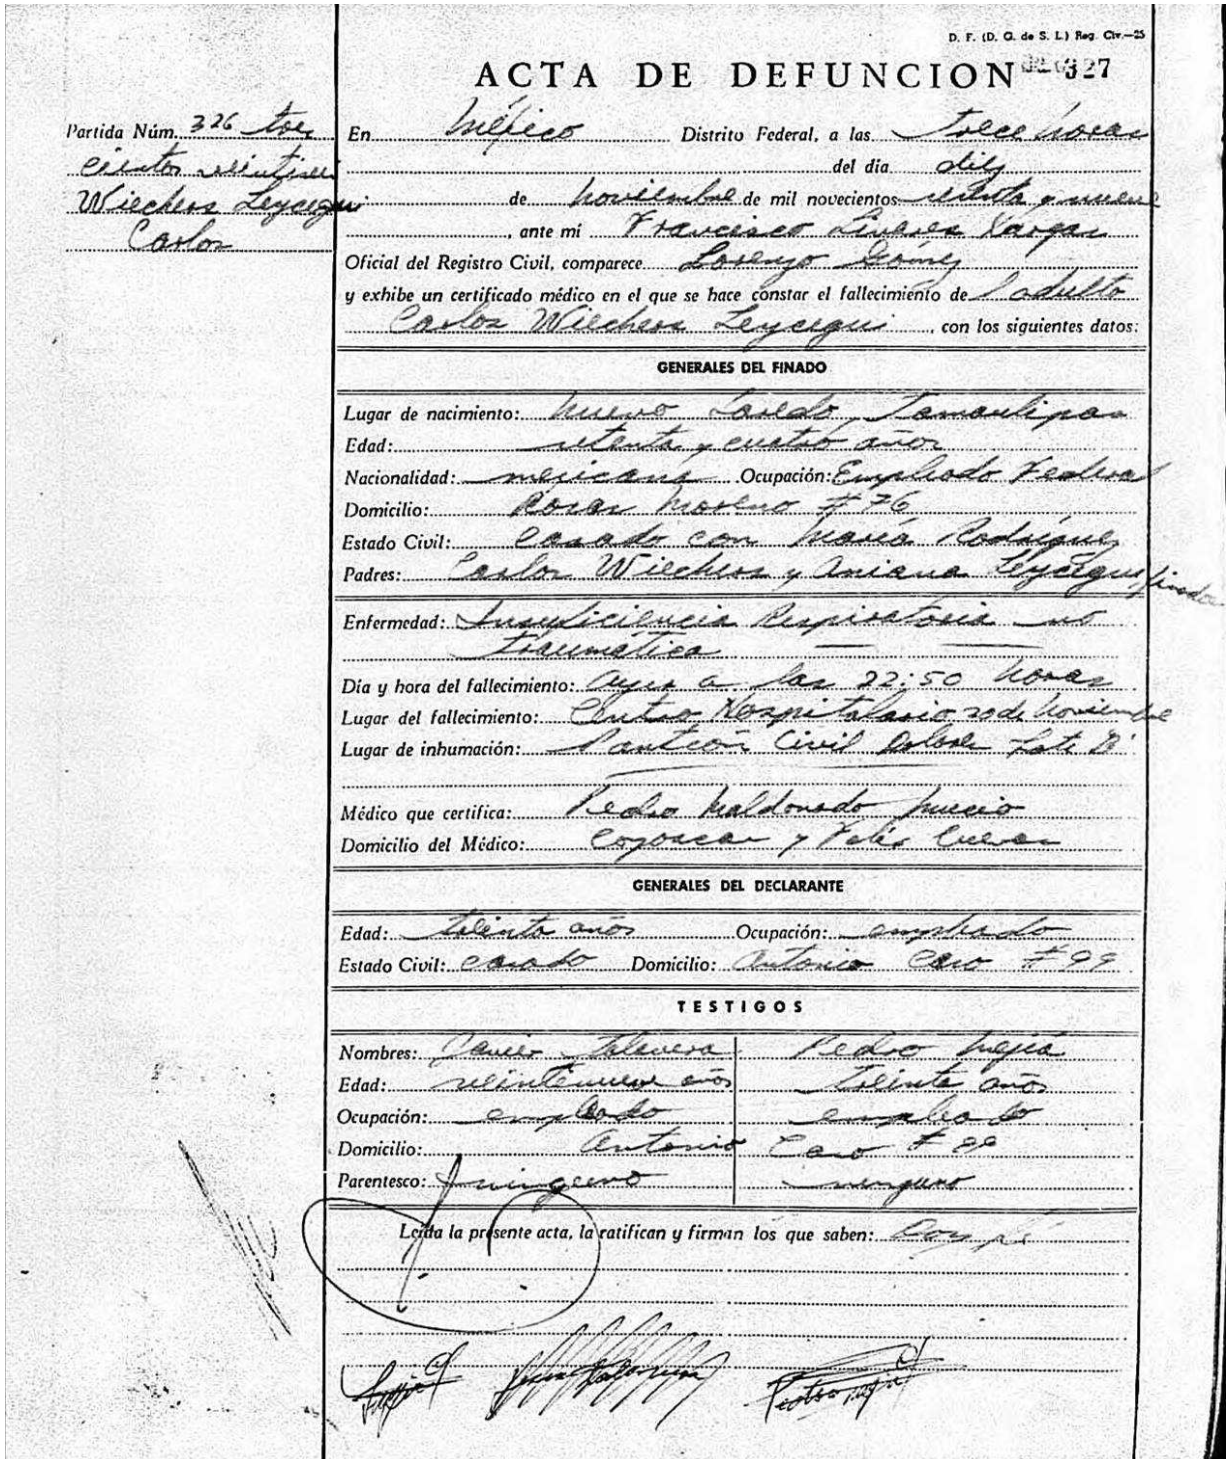 D. F. (D. G. de S. L.) Reg. Civ.—25
ACTA DE DEFUNCION 327
Partida Núm. 326 tres
cientos veintiseis
Wiechers Leycegui
Carlos
En México Distrito Federal, a las trece horas
del día diez
de noviembre de mil novecientos setenta y nueve
, ante mí Francisco Linares Vargas
Oficial del Registro Civil, comparece Lorenzo Gómez
y exhibe un certificado médico en el que se hace constar el fallecimiento de l adulto
Carlos Wiechers Leycegui, con los siguientes datos:
GENERALES DEL FINADO
Lugar de nacimiento: Nuevo Laredo, Tamaulipas
Edad: setenta y cuatro años
Nacionalidad: mexicana Ocupación: Empleado Federal
Domicilio: Rosas Moreno # 76
Estado Civil: Casado con María Rodríguez
Padres: Carlos Wiechers y Aniana Leycegui, finados
Enfermedad: Insuficiencia Respiratoria no
traumática
Día y hora del fallecimiento: ayer a las 22:50 horas
Lugar del fallecimiento: Centro Hospitalario 20 de Noviembre
Lugar de inhumación: Panteón Civil Dolores Lote
Médico que certifica: Pedro Maldonado
Domicilio del Médico: Coyoacan y Felix Cuevas
GENERALES DEL DECLARANTE
Edad: treinta años Ocupación: empleado
Estado Civil: casado Domicilio: Antonio Caso # 99
TESTIGOS
Nombres: Javier Talavera Pedro Mejía
Edad: veintenueve años treinta años
Ocupación: empleado empleado
Domicilio: Antonio Caso # 99
Parentesco: ninguno ninguno
Leída la presente acta, la ratifican y firman los que saben: